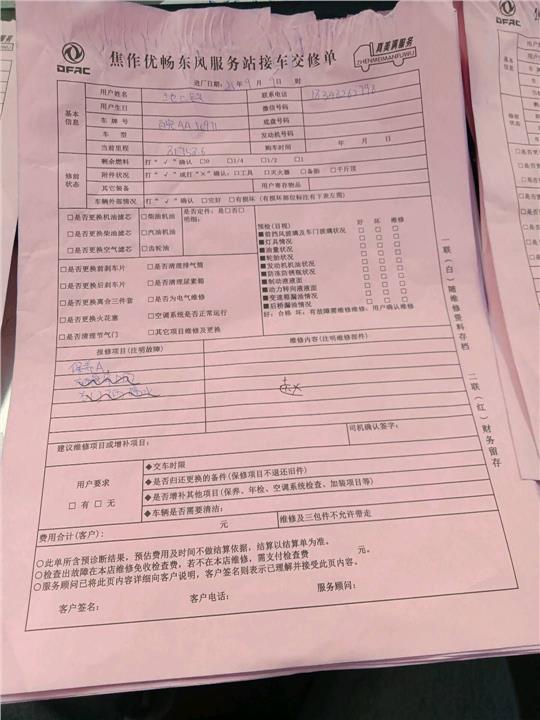 DFAC
焦作优畅东风服务站接车交修单
真美满服务
ZHENMEIMANFUWU
进厂日期: 年 9 月 9 日 时
基本信息
用户姓名 联系电话
用户生日 微信号码
车牌号 底盘号码
车型 发动机号码
当前里程 购车时间 年 月 日
修前状态
剩余燃料 打“√”确认:□0 □1/4 □1/2 □1
附件状况 打“√”或打“×”确认:□工具 □灭火器 □备胎 □千斤顶
其它装备 用户寄存物品
车辆外部情况 打“√”确认 □完好 □有损坏(有损坏部位标注有下表左图)
□是否更换机油滤芯 □柴油机油 是否定件:是□否□
明细:
□是否更换柴油滤芯 □汽油机油
□是否更换空气滤芯 □齿轮油
□是否更换前刹车片 □是否清理排气筒
□是否更换后刹车片 □是否清理尿素箱
□是否更换离合三件套 □是否为电气维修
□是否更换火花塞 □空调系统是否正常运行
□是否清理节气门 □其它项目维修及更换
预检(目视) 好 坏 维修
■前挡风玻璃及车门玻璃状况 □ □ □
■灯具情况 □ □ □
■油量状况 □ □ □
■轮胎状况 □ □ □
■发动机机油状况 □ □ □
■防冻防锈瓶状况 □ □ □
■制动液液面 □ □ □
■动力转向液液面 □ □ □
■变速箱漏油情况 □ □ □
■后桥漏油情况 □ □ □
好:合格 坏:有故障需维修维修:用户确认维修
报修项目(注明故障) 维修内容(注明维修部件)
保养A
建议维修项目或增补项目: 司机确认签字:
用户要求
□有 □无
◆交车时限
◆是否归还更换的备件(保修项目不退还旧件)
◆是否增补其他项目(保养、年检、空调系统检查、加装项目等)
◆车辆是否需要清洁:
费用合计(客户): 元 维修及三包件不允许带走
○此单所含预诊断结果,预估费用及时间不做结算依据,结算以结算单为准。
○检查出故障在本店维修免收检查费,若不在本店维修,需支付检查费 元。
○服务顾问已将此页内容详细向客户说明,客户签名则表示已理解并接受此页内容。
客户签名: 客户电话: 服务顾问:
一联(白)随维修资料存档
二联(红)财务留存